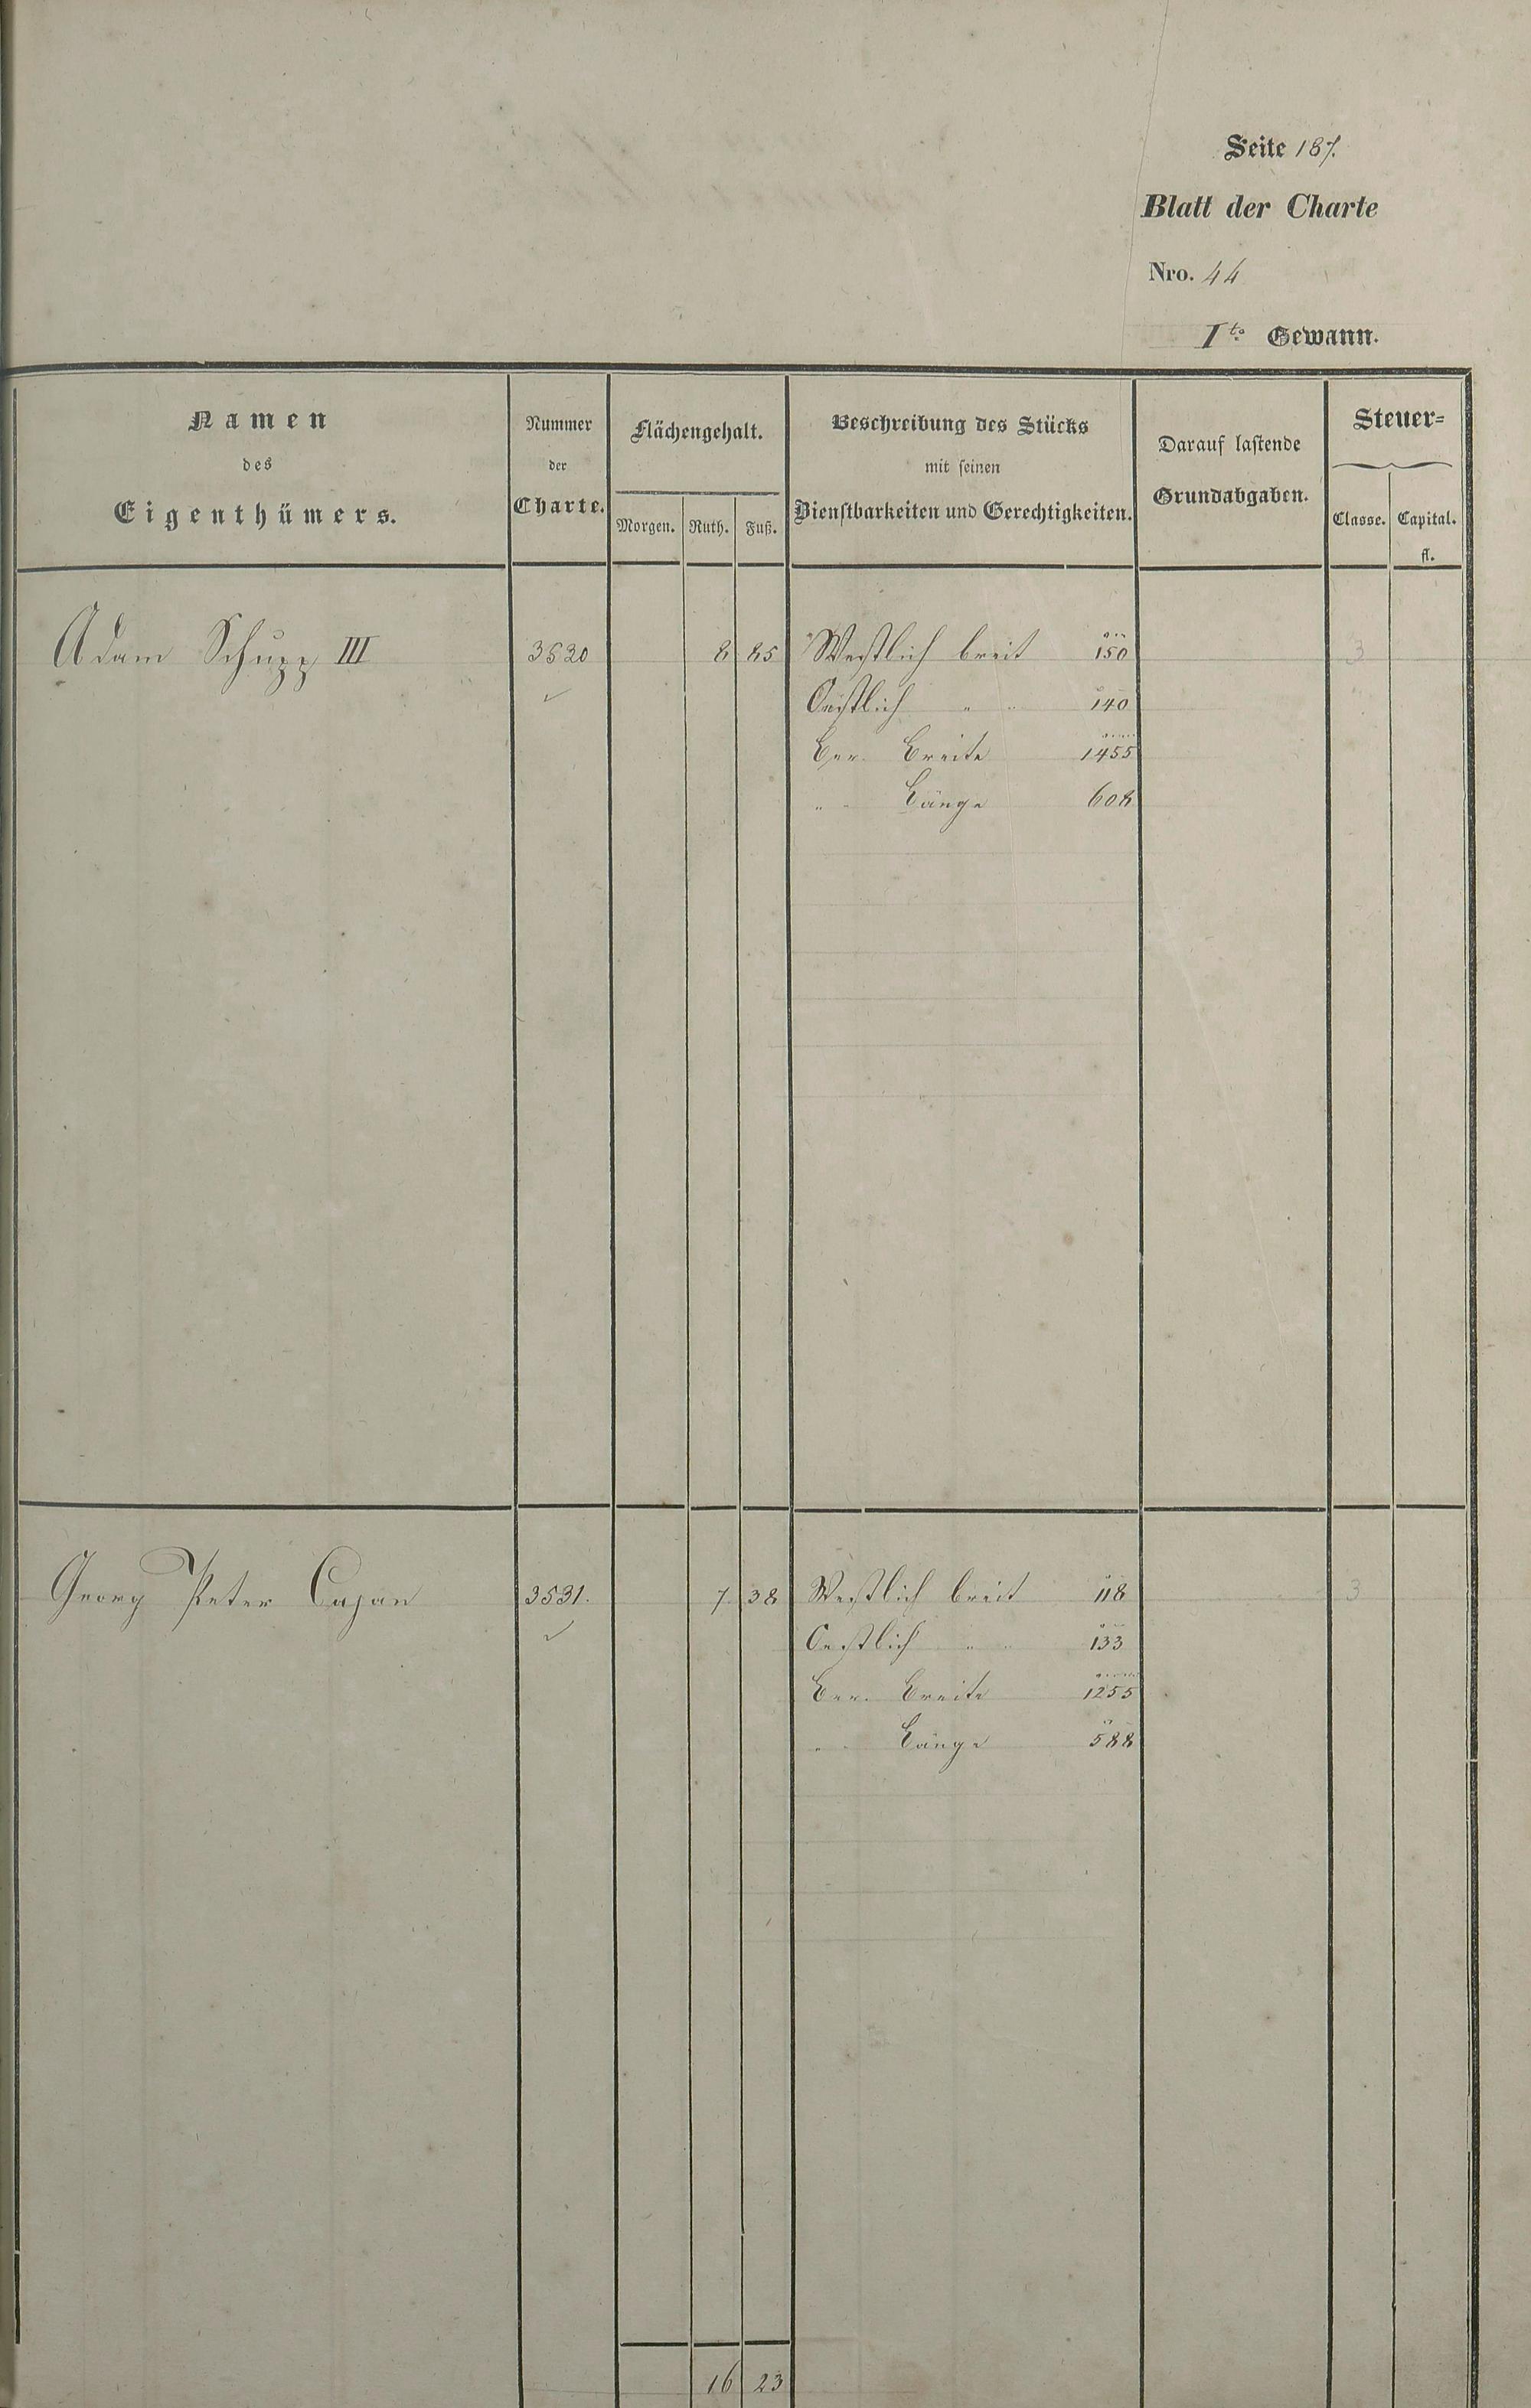 Seite 187.
Blatt der Charte
Nro. 44
I te Gewann.
Namen
des
Eigenthümers.
Nummer
der
Charte.
Flächengehalt.
Morgen. Ruth. Fuß.
Beschreibung des Stücks
mit seinen
Dienstbarkeiten und Gerechtigkeiten.
Darauf lastende
Grundabgaben.
Steuer=
Classe. Capital.
fl.
Adam Schupp III 3530 8 85 Westlich breit 150 3
Oestlich " " 140
Ber. Breite 1455
" " Länge 608
Georg Peter Cajan 3531. 7 38 Westlich breit 118 3
Oestlich " " 133
Ber. Breite 1255
" " Länge 588
16 23